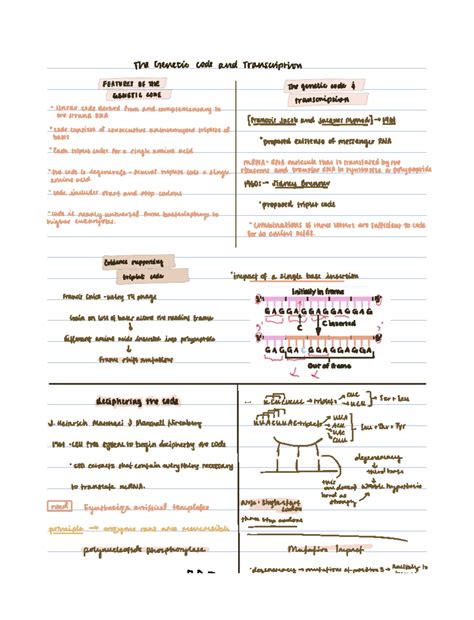 The Genetic Code and Transcription
FEATURES OF THE
GENETIC CODE
* Linear code derived from and complementary to
DNA
* code consists of triplets of
bases
* Each triplet codes for a single amino acid
* the code is degenerate - several triplets code a single
amino acid
* code includes start and stop codons
* code is nearly universal from bacteriophage to
higher eukaryotes
The genetic code &
transcription
[Francois Jacob and Jacques Monod] → 1961
*proposed existence of messenger RNA
mRNA - RNA molecule that is by the
ribosome and to synthesize a polypeptide
1960s → Sidney Brenner
*proposed triplet code
*combinations of three letters are sufficient to code
for 20 amino acids
Evidence supporting
triplet code
Francis Crick - using T4 phage
Gain or loss of bases alters the reading frame
Different amino acids inserted into polypeptide
Frame shift mutation
*impact of a single base insertion
Initially in frame
GAGGAGGAGGAGGAG
C
C inserted
GAGGACGGAGGAGGAG
Out of frame
deciphering the code
J. Heinrich Matthaei & Marshall Nirenberg
1961 - cell free system to begin deciphering the code
* cell extracts that contain everything necessary
to translate mRNA
need
Synthesize artificial templates
principle → enzyme rxns are reversible
polynucleotide phosphorylase
UCUCUCUC → triplets
CUC
UCU
Ser + Leu
UUACUUAC → triplets
UUA
Ser + Leu + Tyr
degeneracy
third base
Wobble hypothesis
strongly
AUG = single start
codon
three stop codons
Mutation Impact
*degeneracy → mutations at position 3 →